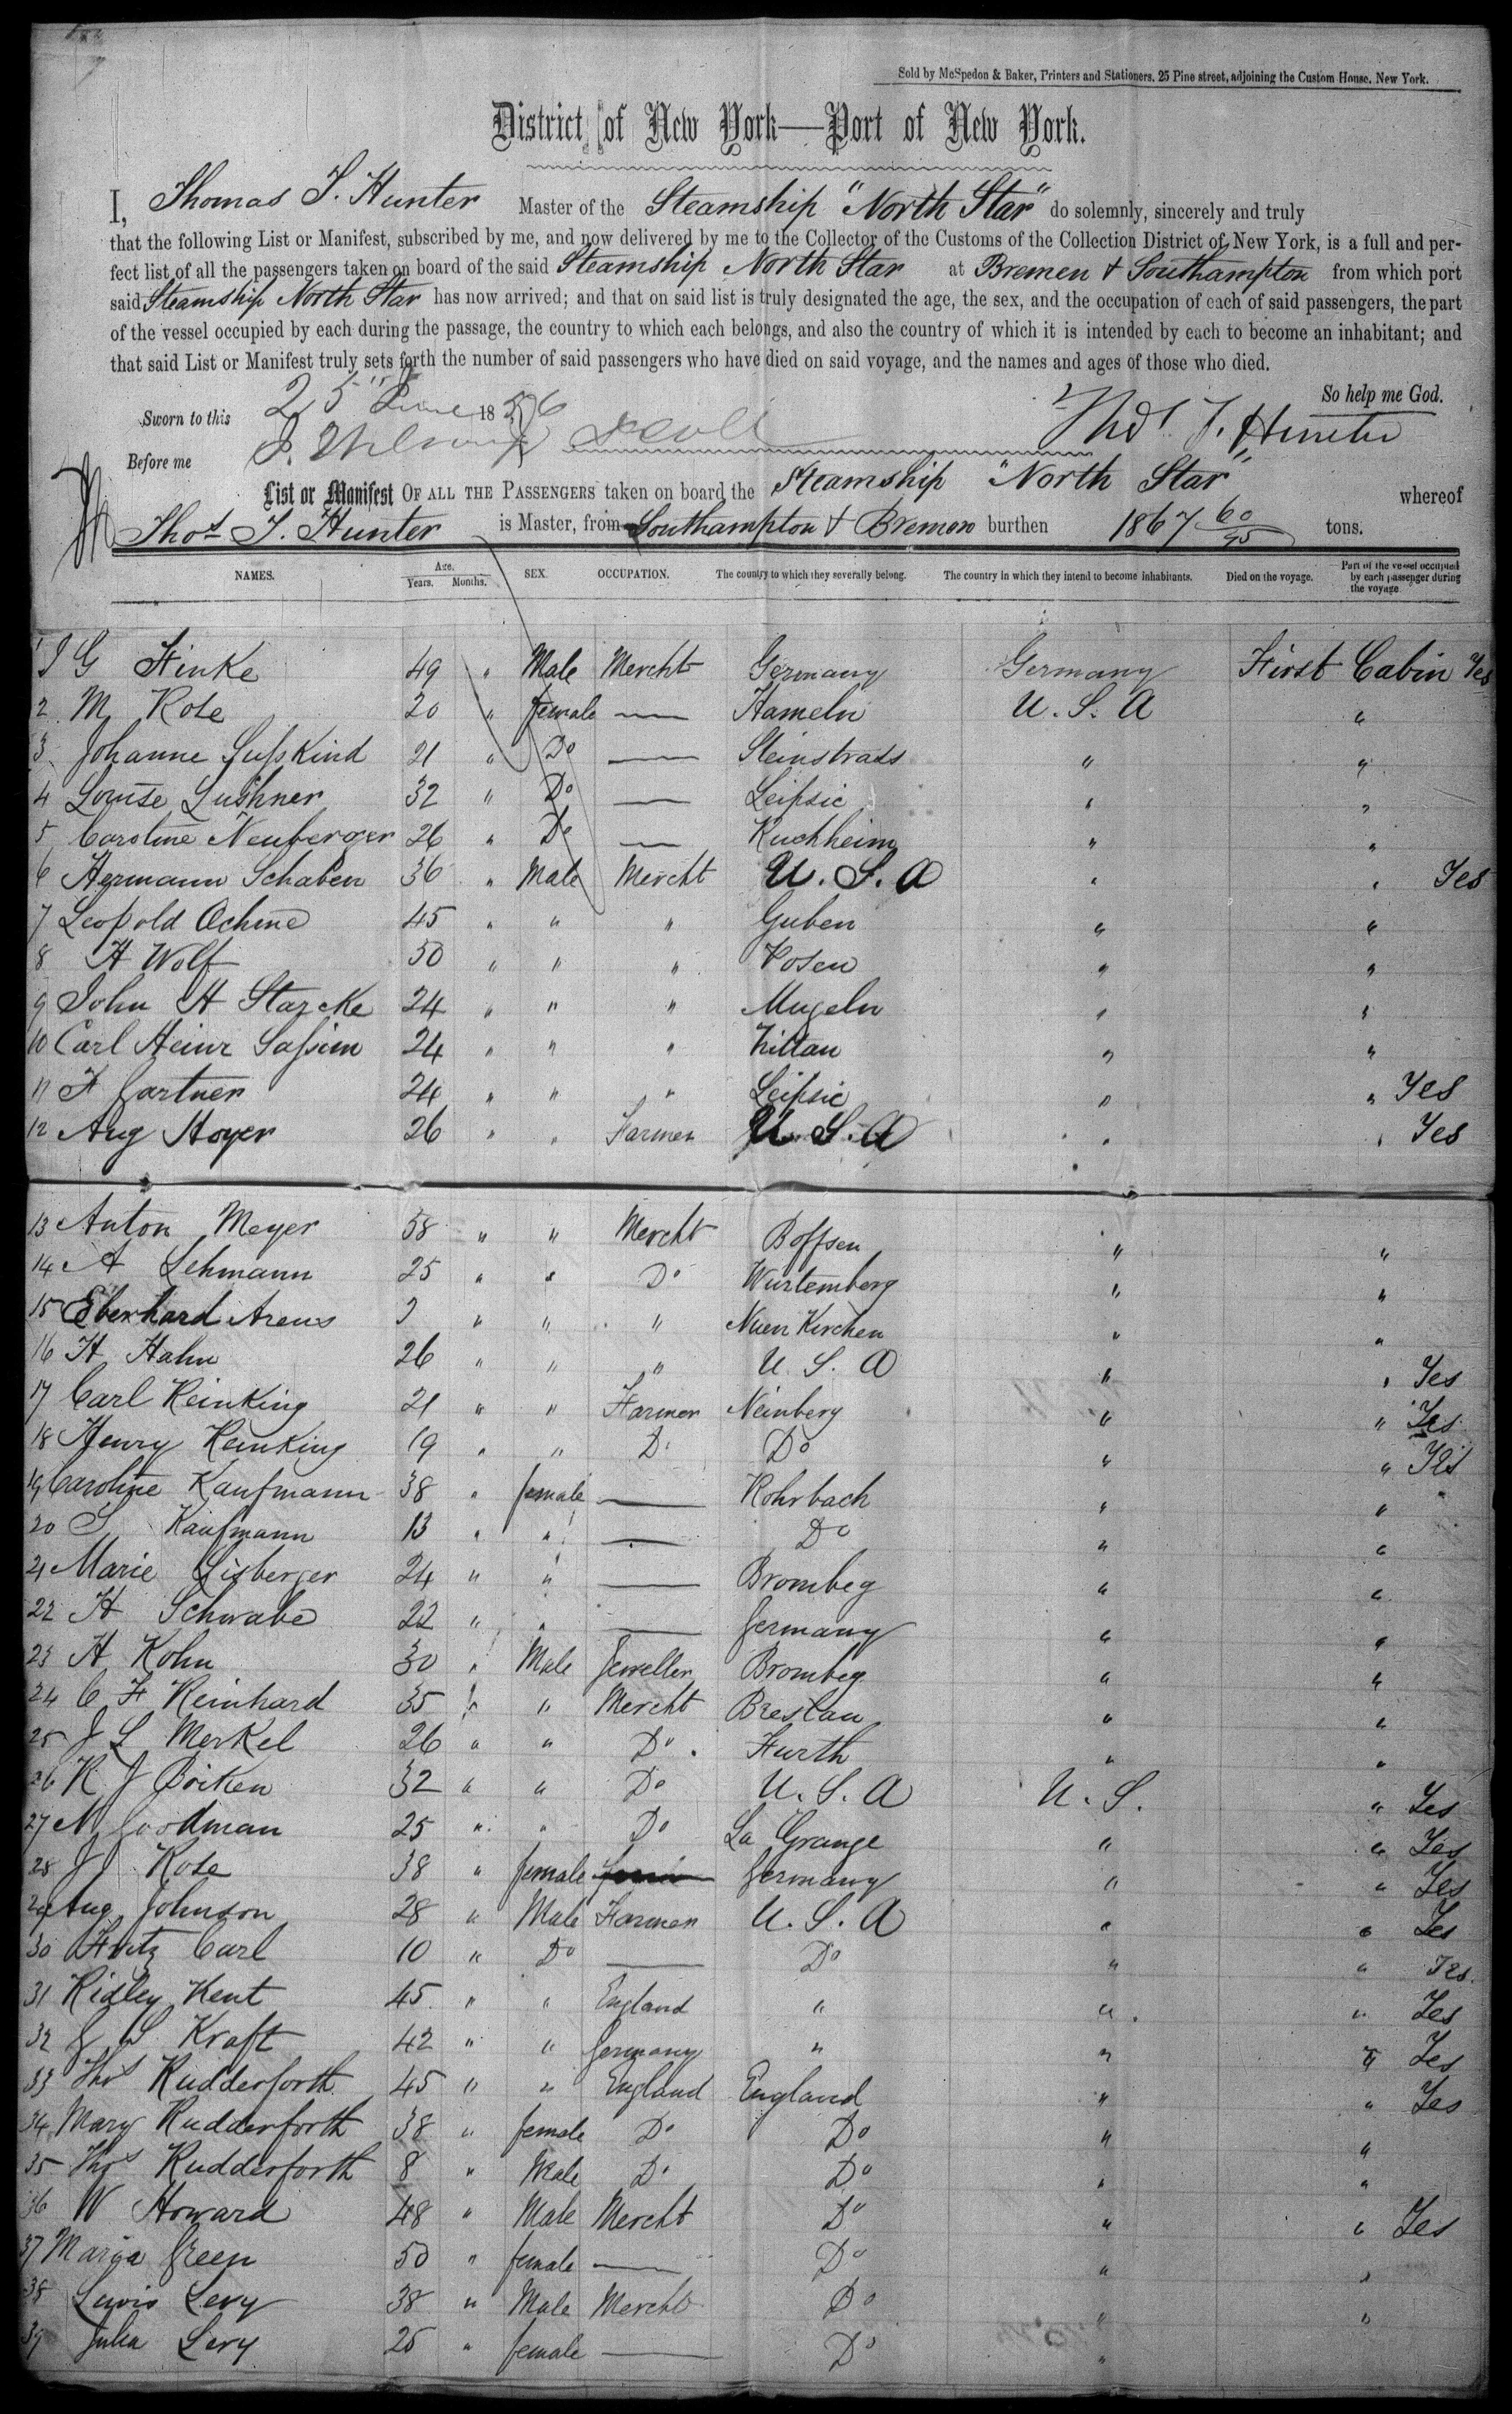 Sold by McSpedon & Baker, Printers and Stationers. 25 Pine street, adjoining the Custom House. New York.
District of New York—Port of New York.
I, Thomas J. Hunter Master of the Steamship "North Star" do solemnly, sincerely and truly
that the following List or Manifest, subscribed by me, and now delivered by me to the Collector of the Customs of the Collection District of New York, is a full and per-
fect list of all the passengers taken on board of the said Steamship North Star at Bremen & Southampton from which port
said Steamship North Star has now arrived; and that on said list is truly designated the age, the sex, and the occupation of each of said passengers, the part
of the vessel occupied by each during the passage, the country to which each belongs, and also the country of which it is intended by each to become an inhabitant; and
that said List or Manifest truly sets forth the number of said passengers who have died on said voyage, and the names and ages of those who died.
So help me God.
Sworn to this 25" June 1856
Thos J. Hunter
Before me
List or Manifest OF ALL THE PASSENGERS taken on board the Steamship "North Star" whereof
Thos J. Hunter is Master, from Southampton & Bremen burthen 1867 60/95 tons.
NAMES. Age. Years. Months. SEX. OCCUPATION. The country to which they severally belong. The country in which they intend to become inhabitants. Died on the voyage. Part of the vessel occupied by each passenger during the voyage
1 J G Finke 49 " Male Mercht Germany Germany First Cabin Yes
2 M Rose 20 " female — Hameln U.S.A "
3 Johanne Susskind 21 " Do — " "
4 Louise Lushner 32 " Do — Leipsic " "
5 Caroline Neuberger 26 " Do — Kuchheim " "
6 Hermann Schaben 36 " Male Mercht U.S.A " " Yes
7 Leopold 45 " " " Guben " "
8 H Wolf 50 " " " Posen " "
9 John H Starcke 24 " " " Mugeln " "
10 Carl Heinr 24 " " " Zittau " "
11 F Gartner 24 " " " Leipsic " " Yes
12 Aug Hoyer 26 " " Farmer U.S.A " " Yes
13 Anton Meyer 58 " " Mercht Boffsen " "
14 A Lehmann 25 " " Do Wurtemberg " "
15 Eberhard Arens " " " Nuen Kirchen " "
16 H Hahn 26 " " " U.S.A " " Yes
17 Carl Reinking 21 " " Farmer Neinberg " " Yes
18 Henry Reinking 19 " " Do Do " " Yes
19 Caroline Kaufmann 38 " female — Rohrbach " "
20 S Kaufmann 13 " " — Do " "
21 Marie Lisberger 24 " " — Brombeg " "
22 H Schwabe 22 " " — Germany " "
23 H Kohn 30 " Male Jeweller Brombeg " "
24 C F Reinhard 35 " " Mercht Breslau " "
25 J L Merkel 26 " " Do Furth " "
26 R J Boiken 32 " " Do U.S.A U.S. " Yes
27 N Goodman 25 " " Do La Grange " " Yes
28 J Rose 38 " female Germany " " Yes
29 Aug Johnson 28 " Male Farmer U.S.A " " Yes
30 Fritz Carl 10 " Do — Do " " Yes
31 Ridley Kent 45 " " England " " " Yes
32 S Kraft 42 " " Germany " " " Yes
33 Thos Rudderforth 45 " " England England " " Yes
34 Mary Rudderforth 38 " female Do Do " "
35 Thos Rudderforth 8 " Male Do Do " "
36 W Howard 48 " Male Mercht Do " " Yes
37 Maria Green 50 " female — Do " "
38 Lewis Levy 38 " Male Mercht Do " "
39 Julia Levy 25 " female — Do "